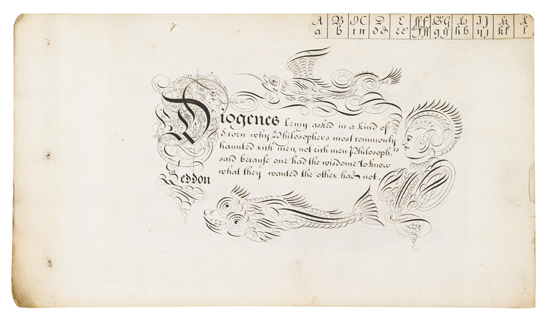 A B C D E ff G H I K L
a b d e g h k l
Diogenes being asked in a kind of
Scorn why Philosophers most commonly
haunted rich men, not rich men Philosoph.
said because one had the wisdome to know
what they wanted the other had not.
Seddon